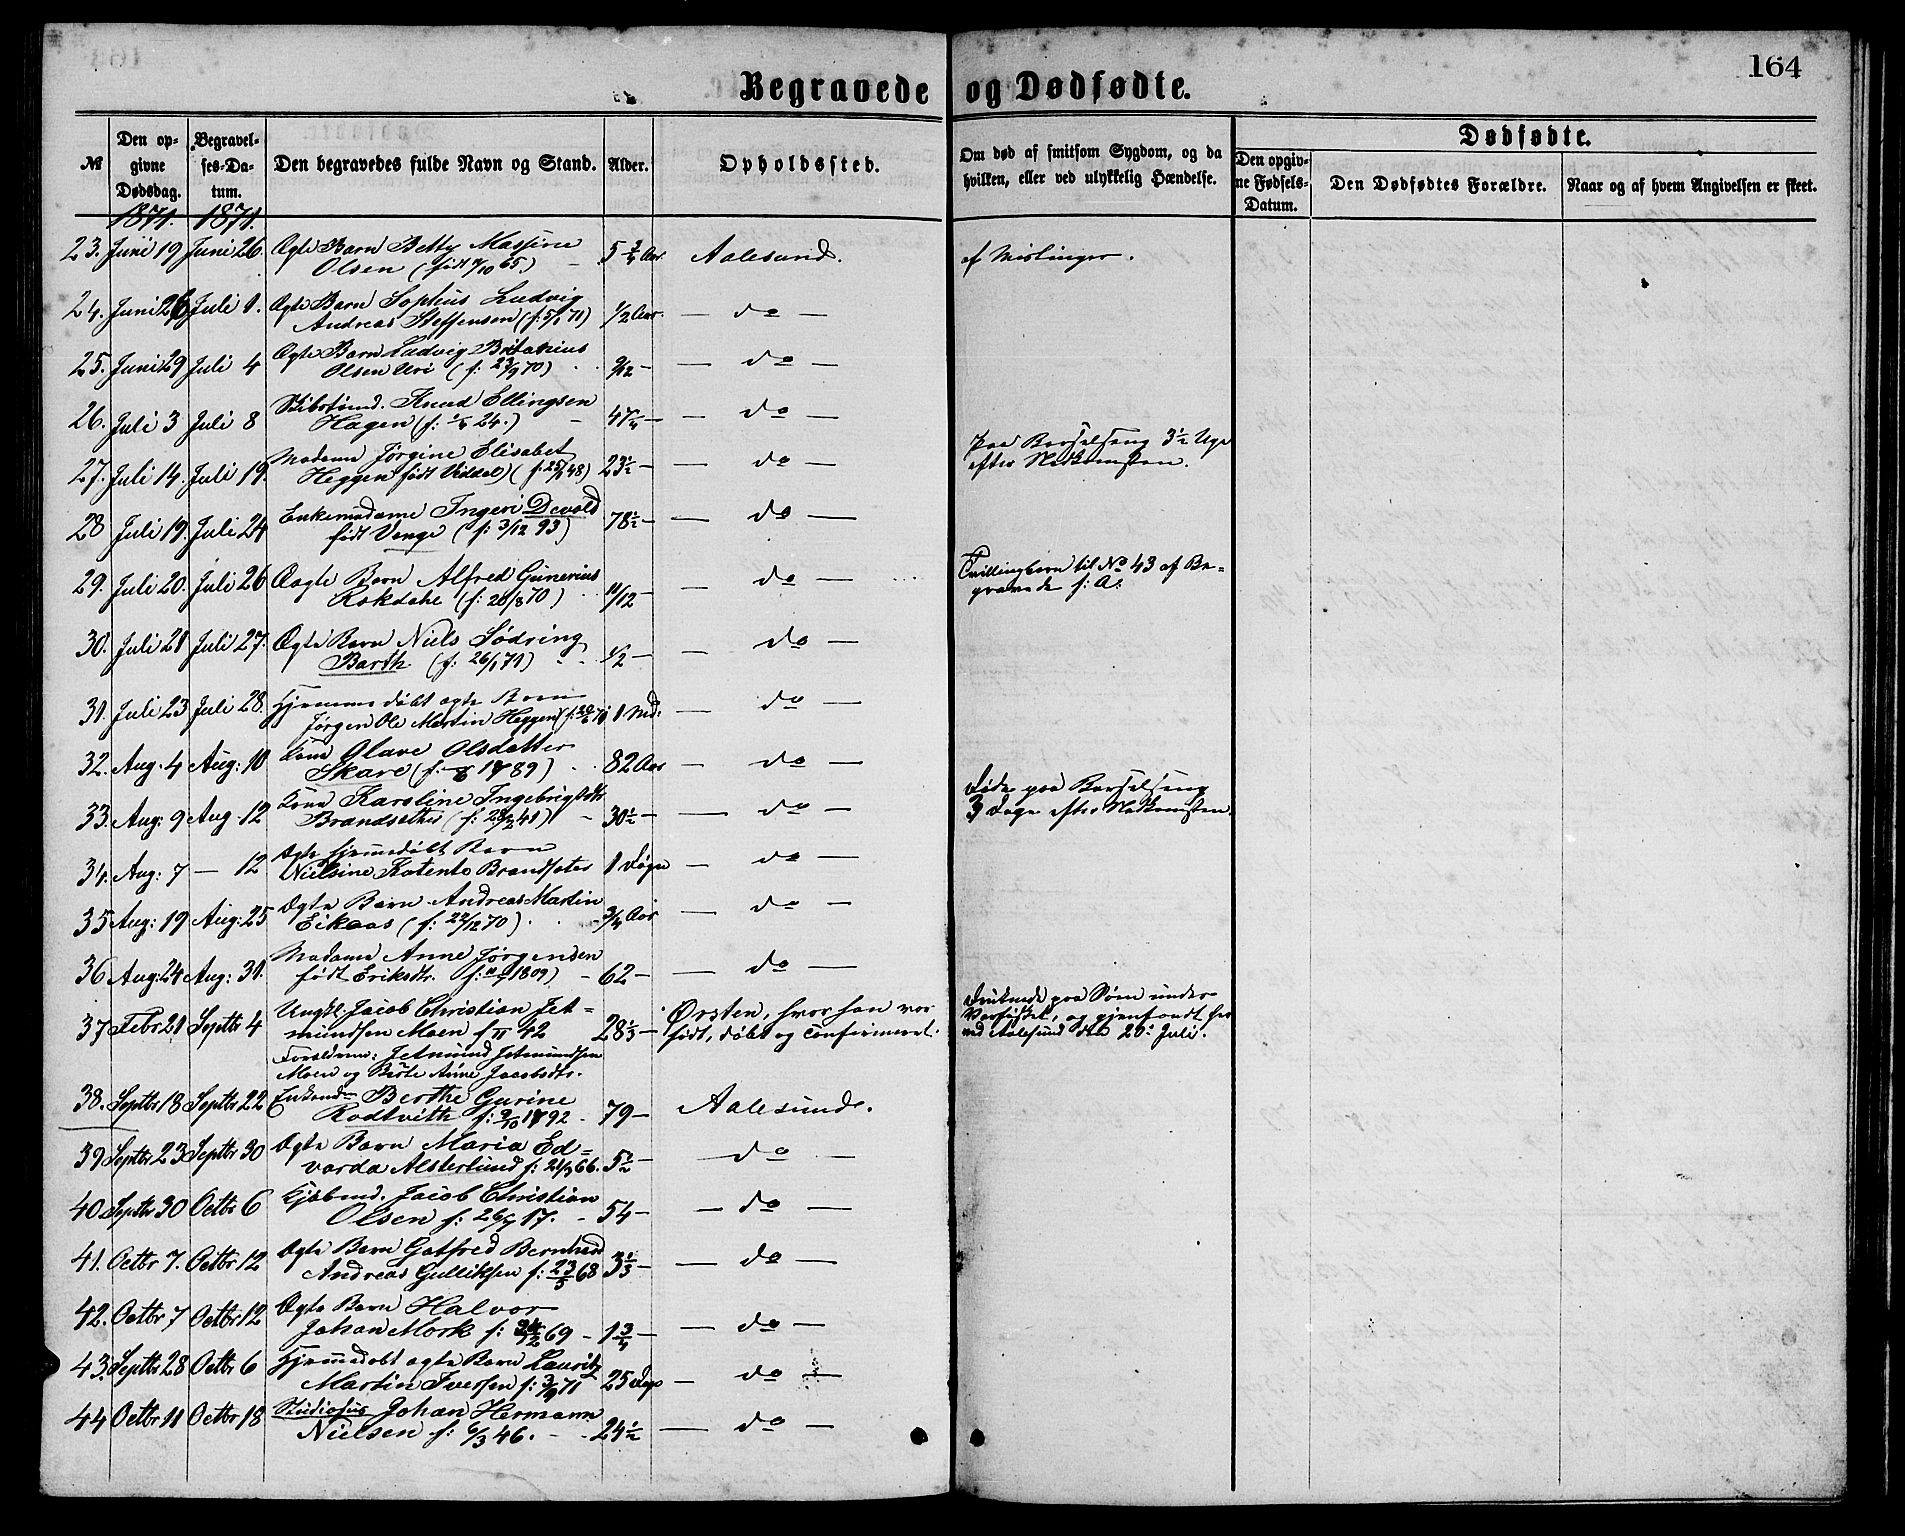 164
Begravede og Dødfødte.
№
Den opgivne Dødsdag.
Begravelses-Datum.
Den begravedes fulde Navn og Stand.
Alder.
Opholdssted.
Om død af smitsom Sygdom, og da hvilken, eller ved ulykkelig Hændelse.
Dødfødte.
Den opgivne Fødsels-Datum.
Den Dødfødtes Forældre.
Naar og af hvem Angivelsen er skeet.
1871. 1871.
23. Juni 19 Juni 26. Ægte Barn Betty Massine 5 3/4 Aar Aalesund. af Mislinger.
Olsen (født 7/10 65.)
24. Juni 26 Juli 1. Ægte Barn Sophus Ludvig 1/2 Aar. — do —
Andreas Steffensen (f: 5/1 71)
25. Juni 29 Juli 4 Ægte Barn Ludvig 9/12 — — do —
Olsen Uri (f: 23/9 70)
26. Juli 3 Juli 8 Skibstømd. Knud Ellingsen 47 1/4 — — do —
Hagen (f: 24.)
27. Juli 14. Juli 19. Madame Jørgine Elisabet 23 1/2 — — do — paa Barselseng 3 1/2 Uge
Heggen født Viddal) (f: 48) efter Nedkomsten.
28 Juli 19. Juli 24 Enkemadame Ingeri Devold 78 1/2 — — do —
født Venge (f: 3/12 93)
29. Juli 20. Juli 26 Ægte Barn Alfred Gunerius 11/12 — — do — Tvillingbarn til No 43 af Be-
Rokdahe (f: 20/8 70) gravede f: A:
30. Juli 21 Juli 27. Ægte Barn Niels Sødring 1/2 — — do —
Barth (f: 26/1 71)
31. Juli 23 Juli 28. Hjemmedøbt ægte Barn 1 Md: — do —
Jørgen Ole Martin Heggen
32. Aug: 4 Aug: 10 Kone Olave Olsdatter 82 Aar — do —
Skare (f: 1789)
33. Aug: 9 Aug: 12 Kone Karoline Ingebrigtsdtr 30 1/2 — — do — Døde paa Barselseng
Brandsæther (f: 41) 3 Dage efter Nedkomsten.
34. Aug: 7 — 12 Ægte hjemmedøbt Barn 1 Døgn — do —
Nielsine Brandsæter
35 Aug: 19 Aug: 25 Ægte Barn Andreas Martin 3/4 Aar — do —
Eikaas (f: 22/12 70)
36 Aug: 24 Aug: 31. Madame Anne Jørgensen 62 — — do —
født Eriksdtr. (f: 1809)
37. Febr 21 Septbr 4 Ungkl. Jacob Christian Jet- 28 1/3 — Ørsten, hvor han var Druknede paa Søen under
mundsen Moen f 42 født, døbt og confirmeret. Vaarfisket, og gjenfandt her
Forældrene: Jetmund Jetmundsen ved Aalesund den 20: Juli.
Moen og Birte Anne Jacobsdtr.
38. Septbr 18 Septbr 22 Enkemd. Berthe Gurine 79 — Aalesund.
Rodtvitt f: 9/10 1792
39 Septbr 23 Septbr 30 Ægte Barn Maria Ed- 5 1/2 — — do —
varda Alsterlund f: 66.
40. Septbr 30 Octbr 6 Kjøbmd. Jacob Christian 54 — — do —
Olsen f: 17.
41. Octbr 7. Octbr 12 Ægte Barn Gotfred Bernhard 3 1/3 — — do —
Andreas Gulliksen f: 23/5 68
42. Octbr 7 Octbr 12 Ægte Barn Halvor 1 3/4 — — do —
Johan Mork f: 69
43. Septbr 28 Octbr 6 Hjemmedøbt ægte Barn Lauritz 25 Dage — do —
Martin Iversen f: 3/9 71
44 Octbr 11 Octbr 18 Studiosus Johan Hermann 24 1/2 — — do —
Nielsen f: 6/3 46.